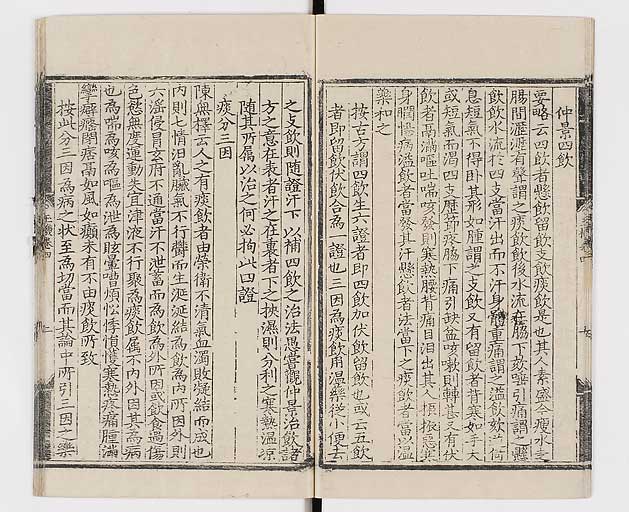 仲景四飲
要略云四飲者懸飲留飲支飲痰飲是也其人素盛今瘦水走
腸間瀝瀝有聲謂之痰飲飲後水流在脇下咳唾引痛謂之懸
飲飲水流於四支當汗出而不汗身體重痛謂之溢飲咳逆倚
息短氣不得卧其形如腫謂之支飲又有留飲者背寒如手大
或短氣而渴四支歷節疼脇下痛引缺盆咳嗽則轉甚又有伏
飲者鬲滿嘔吐喘咳發則寒熱腰背痛目泪出其人振振惡寒
身瞤惕病溢飲者當發其汗懸飲者法當下之痰飲者當以溫
藥和之
按古方謂四飲生六證者即四飲加伏飲留飲也或云五飲
者即留飲伏飲合為一證也三因為痰飲用溫藥從小便去
之支飲則隨證汗下以補四飲之治法愚當觀仲景治飲諸
方之意在表者汗之在裏者下之挾濕則分利之寒熱溫凉
隨其所屬以治之何必拘此四證
痰分三因
陳無擇云人之有痰飲者由榮衛不清氣血濁敗凝結而成也
內則七情汩亂臟氣不行欝而生涎涎結為飲為內所因外則
六滛侵冒玄府不通當汗不泄蓄而為飲為外所因或飲食過傷
色慾無度運動失宜津液不行聚為痰飲屬不內外因其為病
也為喘為咳為嘔為泄為眩暈嘈煩忪悸慣懥寒熱疼痛腫滿
攣癖癃閉痞鬲如風如癲未有不由痰飲所致
按此分三因為病之状至為切當而其論中所引三因之藥